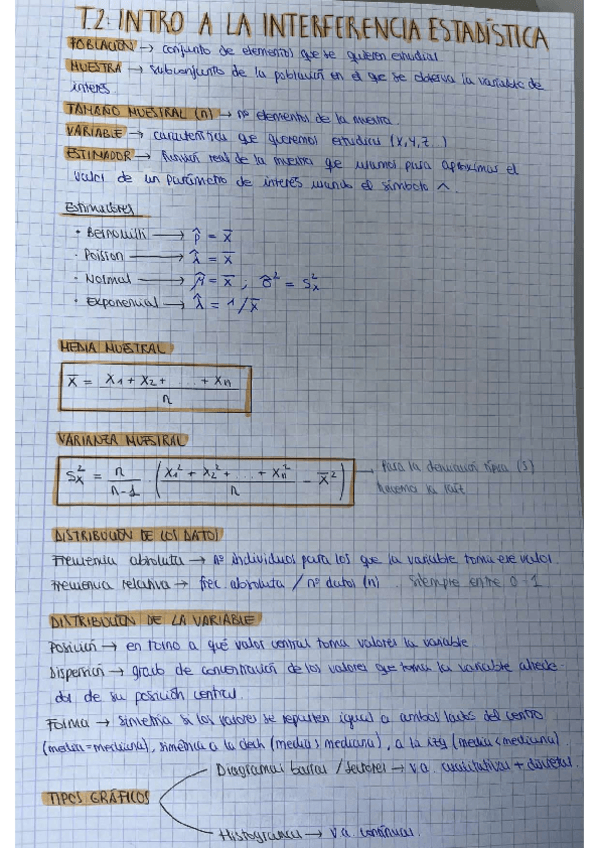 T2: INTRO A LA INTERFERENCIA ESTADÍSTICA
POBLACIÓN → conjunto de elementos que se quieren estudiar
MUESTRA → subconjunto de la población en el que se observa la variable de
interés
TAMAÑO MUESTRAL (n) → nº elementos de la muestra
VARIABLE → característica que queremos estudiar (X,Y,Z..)
ESTIMADOR → función real de la muestra que usamos para aproximar el
valor de un parámetro de interés usando el símbolo ^.
Estimadores
· Bernouilli → p̂ = x̄
· Poisson → λ̂ = x̄
· Normal → μ̂ = x̄ ; σ̂² = Sx²
· Exponencial → λ̂ = 1/x̄
MEDIA MUESTRAL
x̄ = (X1 + X2 + ... + Xn) / n
VARIANZA MUESTRAL
Sx² = n/(n-1) · ((X1² + X2² + ... + Xn²)/n - x̄²) → Para la desviación típica (s)
hacemos la raíz
DISTRIBUCIÓN DE LOS DATOS
Frecuencia absoluta → nº individuos para los que la variable toma ese valor
Frecuencia relativa → frec absoluta / nº datos (n) . Siempre entre 0-1
DISTRIBUCIÓN DE LA VARIABLE
Posición → en torno a qué valor central toma valores la variable
Dispersión → grado de concentración de los valores que toma la variable alrede-
dor de su posición central.
Forma → simetría si los valores se reparten igual a ambos lados del centro
(media=mediana), simetría a la dech (media > mediana), a la izq (media < mediana).
Diagramas barras / sectores → v.a. cualitativas + discretas.
TIPOS GRÁFICOS
Histogramas → v.a. continuas.